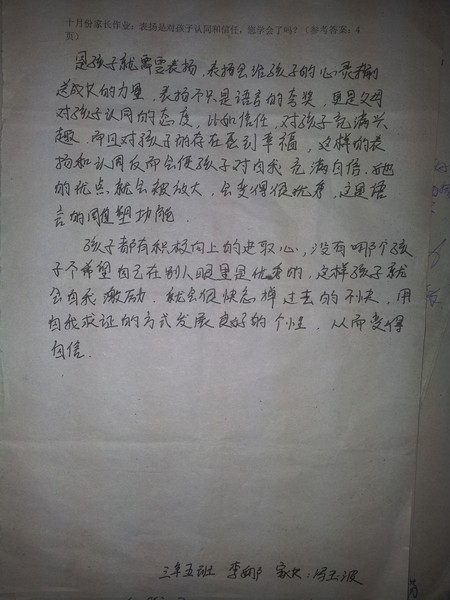 十月份家长作业：表扬是对孩子认同和信任，您学会了吗？（参考答案：4
页）
是孩子就需要表扬，表扬会给孩子的心灵输
送成长的力量，表扬不只是语言的夸奖，更是父母
对孩子认同的态度，比如信任，对孩子充满兴
趣，而且对孩子的存在感到幸福，这样的表
扬和认同反而会使孩子对自我充满自信，她
的优点就会被放大，会变得很优秀，这是语
言的塑功能．
孩子都有积极向上的进取心，没有哪个孩
子不希望自己在别人眼里是优秀的，这样孩子就
会自我激励．就会很快忘掉过去的不快，用
自我求证的方式发展良好的个性．从而变得
自信．
三年五班 李娜 家长：冯玉波